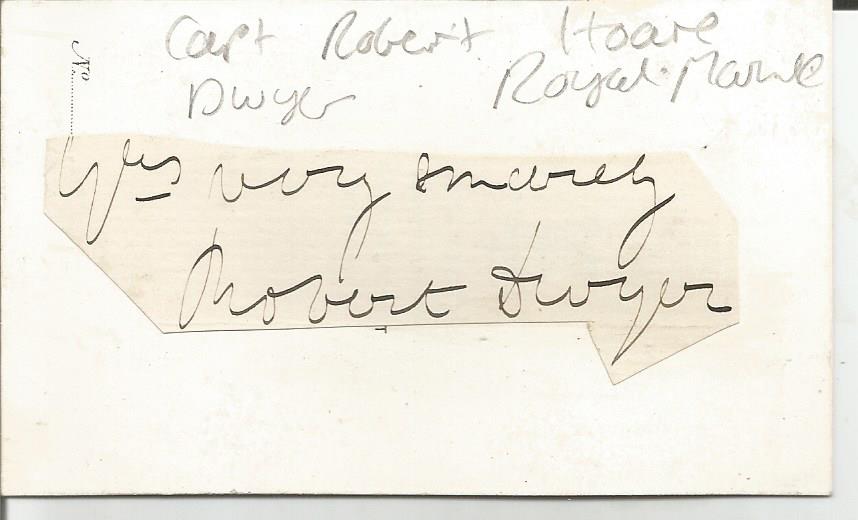 Capt Robert Hoare
Dwyer Royal Marine
No
Yrs very sincerely
Robert Dwyer